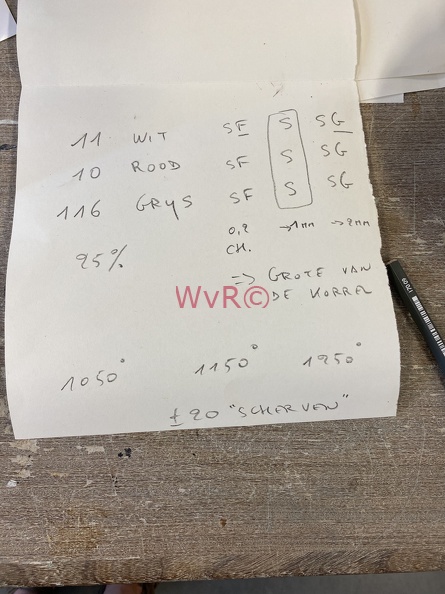 11 WIT SF S SG
10 ROOD SF S SG
116 GRYS SF S SG
0,2 →1mm →2mm
25% CH.
=> GROTE VAN
WvR©
DE KORREL
1050° 1150° 1250°
± 20 "SCHERVEN"